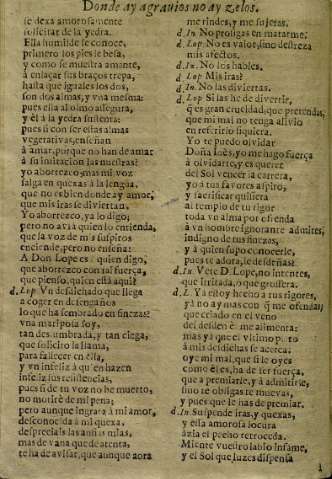 Donde ay agrauios no ay zelos.
se dexa amorosamente
solicitar de la yedra.
Ella humilde le conoce,
primero los pies le besa,
y como se muestra amante,
à enlaçar sus braços trepa,
hasta que iguales los dos,
son dos almas, y vna mesma:
pues ella al olmo assegura,
y èl à la yedra sustenta:
pues si con ser estas almas
vegetatiuas, enseñan
à amar, porque no han de amar
à su imitacion las nuestras?
yo aborrezco, mas mi voz
salga en quexas à la lengua,
que no es bien donde ay amor,
que mis iras se diuiertan.
Yo aborrezco, ya lo digo;
pero no aya quien lo entienda,
que la voz de mis suspiros
enciende, pero no enseña:
A Don Lope es à quien digo,
que aborrezco con tal fuerça,
que pienso, quien està aqui?
d. Lop. Vn desdichado que llega
à coger en desengaños
lo que ha sembrado en finezas:
vna mariposa soy,
tan deslumbrada, y tan ciega,
que solicito la llama,
para fallecer en ella,
y vn infeliz à quien hazen
infeliz sus resistencias,
pues si de tu voz no he muerto,
no morirè de mi pena;
pero aunque ingrata à mi amor,
desconocida à mi quexa,
desprecias las ansias mias,
mas de vana que de atenta,
te ha de auisar, que aunque aora
me rindes, y me sujetas.
d. In. No prosigas en matarme.
d. Lop. No es valor, sino destreza
mis afectos.
d. In. No los hables.
d. Lop. Mis iras?
d. In. No las diuiertas.
d. Lop. Si las he de diuertir,
q̃ es gran crueldad, que pretendas,
que mi mal no tenga aliuio
en referirlo siquiera.
Yo te puedo oluidar
Doña Inès, yo me hago fuerça
à oluidarte, y es querer
del Sol vencer la carrera,
yo à tus fauores aspiro,
y sacrificar quisiera
al templo de tu rigor
toda vn alma por ofrenda
à vn hombre ignorante admites,
indigno de tus finezas,
y à quien supo conocerle,
pues te adora, le desdeñas?
d. In. Vete D. Lope, no intentes,
que irritada, ò que grossera.
d. L. Ya estoy hecho à tus rigores,
y à no ay mas con q̃ me ofendas,
que celado en el veno
del desden è me alimenta:
mas ya que el vltimo puerto
à mis desdichas se acerca,
oye mi mal, que si le oyes
como èl es, ha de ser fuerça,
que à premiarle, y à admitirle,
sino te obligas te mueuas,
y pues que le has de premiar.
d. In. Suspende iras, y quexas,
y essa amorosa locura
àzia el pecho retroceda.
Miente vuestro labio infame,
y el Sol que luzes dispensa